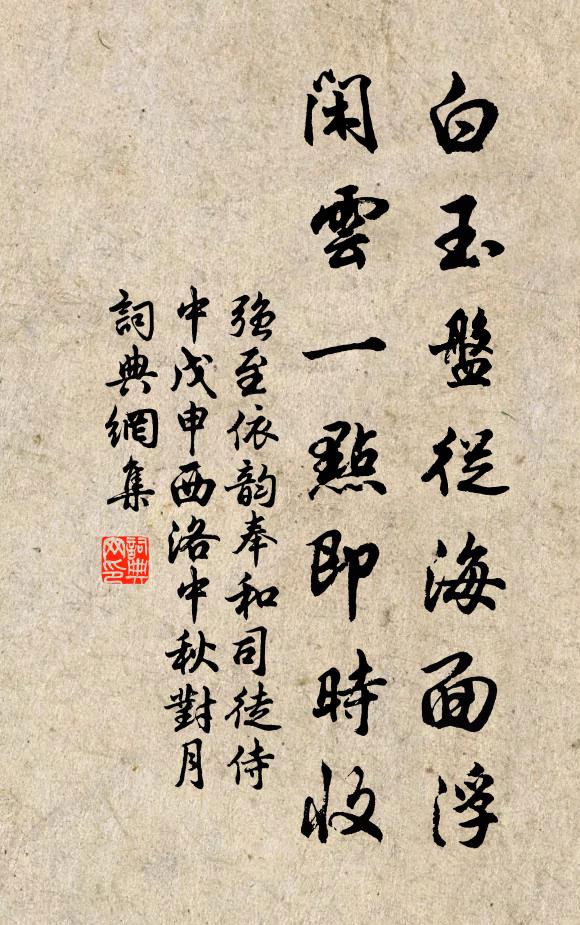 白玉盤從海面浮
閑雲一點即時收
強至依韵奉和司徒侍
中戊申西洛中秋對月
詞典網集
詞典网印